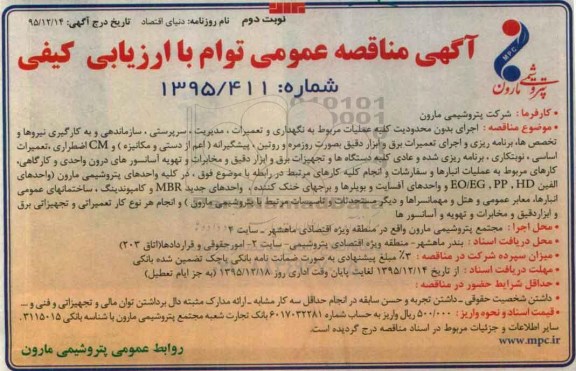 نوبت دوم
نام روزنامه: دنیای اقتصاد
تاریخ درج آگهی: ۹۵/۱۲/۱۴
MPC
پتروشیمی مارون
آگهی مناقصه عمومی توام با ارزیابی کیفی
شماره: ۱۳۹۵/۴۱۱
• کارفرما : شرکت پتروشیمی مارون
• موضوع مناقصه : اجرای بدون محدودیت کلیه عملیات مربوط به نگهداری و تعمیرات ، مدیریت ، سرپرستی ، سازماندهی و به کارگیری نیروها و
تخصص ها، برنامه ریزی و اجرای تعمیرات برق و ابزار دقیق بصورت روزمره و روتین ، پیشگیرانه ( اعم از دستی و مکانیزه ) و CM اضطراری ،تعمیرات
اساسی ، نوبتکاری ، برنامه ریزی شده و عادی کلیه دستگاه ها و تجهیزات برق و ابزار دقیق و مخابرات و تهویه آسانسور های درون واحدی و کارگاهی،
کارهای مربوط به عملیات انبارها و سفارشات و انجام کلیه کارهای مرتبط در رابطه با موضوع فوق ، در کلیه واحدهای پتروشیمی مارون (واحدهای
الفین EO/EG , PP , HD و واحدهای آفسایت و بویلرها و برجهای خنک کننده ، واحدهای جدید MBR و کامپوندینگ ، ساختمانهای عمومی
انبارها، معابر عمومی و هتل و مهمانسراها و دیگر مستحدثات و تاسیسات مرتبط با پتروشیمی مارون ) و انجام هر نوع کار تعمیراتی و تجهیزاتی برق
و ابزاردقیق و مخابرات و تهویه و آسانسور ها
• محل اجرا : مجتمع پتروشیمی مارون واقع در منطقه ویژه اقتصادی ماهشهر ـ سایت ۴
• محل دریافت اسناد : بندر ماهشهر- منطقه ویژه اقتصادی پتروشیمی- سایت ۲- امورحقوقی و قراردادها(اتاق ۲۰۳)
• میزان سپرده شرکت در مناقصه : ۳٪ مبلغ پیشنهادی به صورت ضمانت نامه بانکی یاچک تضمین شده بانکی
• مهلت دریافت اسناد : از تاریخ ۱۳۹۵/۱۲/۱۴ لغایت پایان وقت اداری روز ۱۳۹۵/۱۲/۱۸ (به جز ایام تعطیل)
• حداقل شرایط حضور در مناقصه :
• داشتن شخصیت حقوقی ـ داشتن تجربه و حسن سابقه در انجام حداقل سه کار مشابه ـ ارائه مدارک مثبته دال برداشتن توان مالی و تجهیزاتی و فنی و ...
• قیمت اسناد و نحوه واریز : ۵۰۰/۰۰۰ ریال واریز به حساب شماره ۶۰۱۷۰۳۲۲۸۱ بانک تجارت شعبه مجتمع پتروشیمی مارون با شناسه بانکی ۳۱۱۵۰۱۵.
سایر اطلاعات و جزئیات مربوط در اسناد مناقصه درج گردیده است.
www.mpc.ir
روابط عمومی پتروشیمی مارون